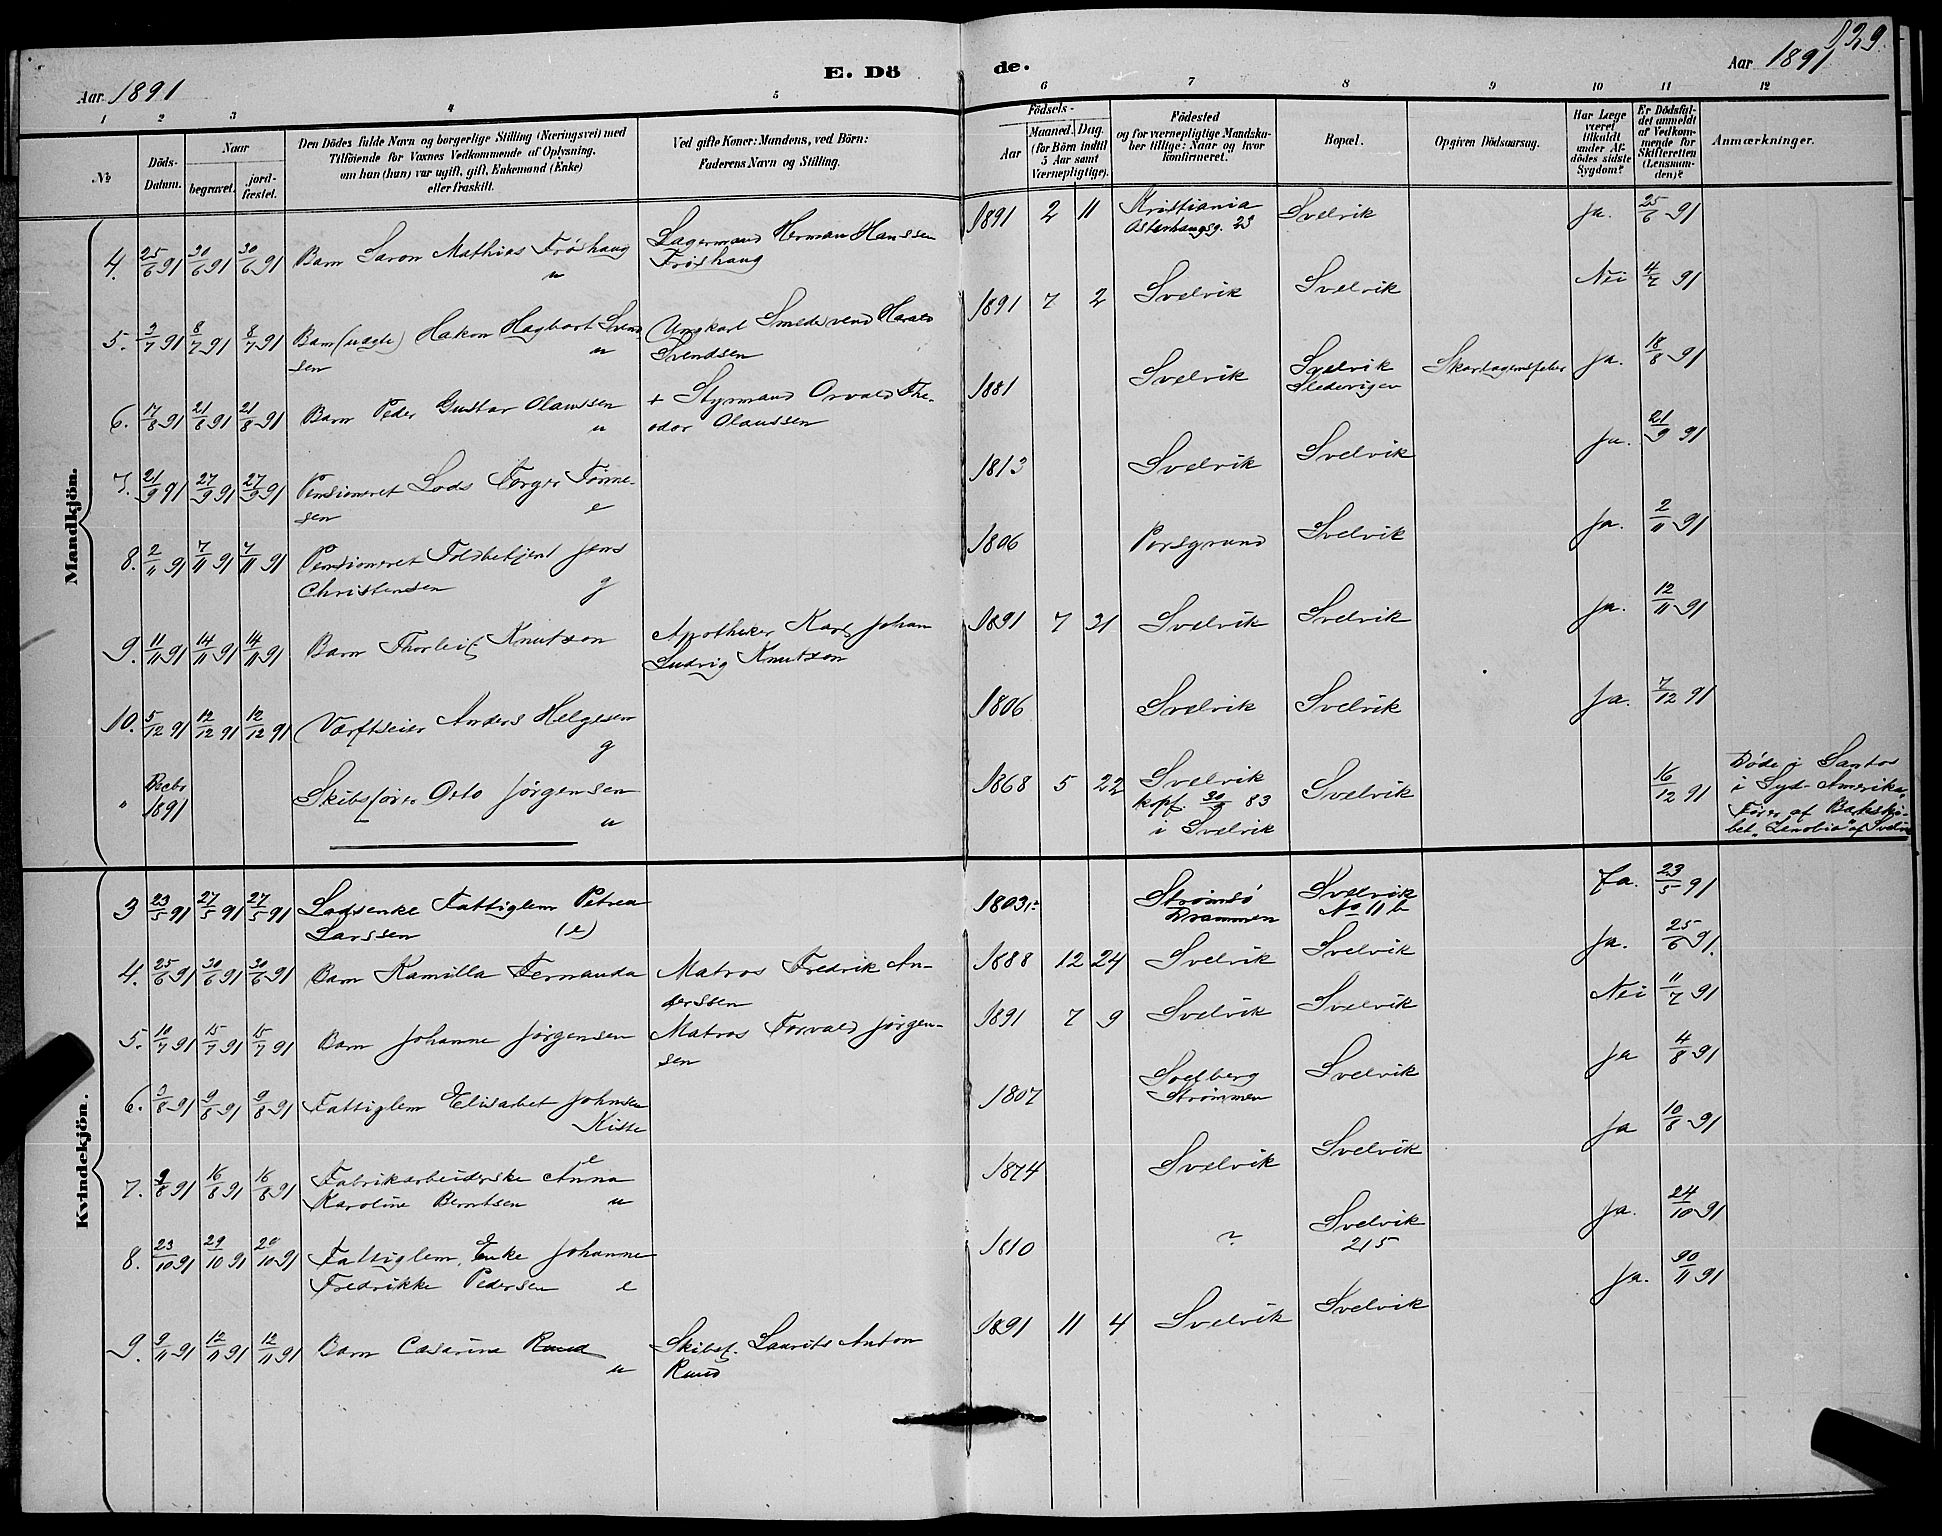 Aar 1891
E. Dö
de.
Aar 1891
129.
1 2 3 4 5 6 7 8 9 10 11 12
№
Döds-Datum.
Naar
begravet.
jord-fæstet.
Den Dödes fulde Navn og borgerlige Stilling (Næringsvei) med
Tilföiende for Voxnes Vedkommende af Oplysning,
om han (hun) var ugift, gift, Enkemand (Enke)
eller fraskilt.
Ved gifte Koner: Mandens, ved Börn:
Faderens Navn og Stilling.
Födsels-
Aar
Maaned. Dag.
(for Börn indtil
5 Aar samt
Værnepligtige).
Födested
og for værnepligtige Mandska-
ber tillige: Naar og hvor
konfirmeret.
Bopæl.
Opgiven Dödsaarsag.
Har Læge
været
tilkaldt
under Af-
dödes sidste
Sygdom?
Er Dödsfal-
det anmeldt
af Vedkom-
mende for
Skifteretten
(Lensman-
den)?
Anmærkninger.
Mandkjön.
4. 25/6 91 30/6 91 30/6 91 Barn Saron Mathias Frøshaug u Lagermand Herman Hanssen
Frøshaug
1891 2 11 Kristiania Svelvik Ja. 25/6 91
Osterhaugsg. 23
5. 3/7 91 8/7 91 8/7 91 Barn (uægte) Hakon Hagbart Svend
sen u Ungkarl Smedesvend Harald
Svendsen
1891 7 2 Svelvik Svelvik Nei 4/7 91
6. 17/8 91 21/8 91 21/8 91 Barn Peder Gustav Olaussen u + Styrmand Orvald The-
odor Olaussen
1881 Svelvik Svelvik Skarlagensfeber Ja. 18/8 91
7. 21/9 91 27/9 91 27/9 91 Pensioneret Lods Torger Tønne-
sen e
1813 Svelvik Svelvik Ja. 21/9 91
8. 2/11 91 7/11 91 7/11 91 Pensioneret Toldbetjent Jens
Christensen g
1806 Porsgrund Svelvik Ja. 2/11 91
9. 11/11 91 14/11 91 14/11 91 Barn Thorleif Knutson Apotheker Karl Johan
Ludvig Knutson
1891 7 31 Svelvik Svelvik Ja. 12/11 91
10. 5/12 91 12/12 91 12/12 91 Værftseier Anders Helgesen
g
1806 Svelvik Svelvik Ja. 7/12 91
" Decbr
1891 Skibsfører Otto Jørgensen
u
1868 5 22 Svelvik Svelvik 16/12 91
konf. 30/9 83
i Svelvik
Døde i Santos
i Syd-Amerika,
Fører af Barkski-
bet "Zenobia" af Svelvik
Kvindekjön.
3 23/5 91 27/5 91 27/5 91 Lodsenke Fattiglem Petrea
Larssen (e)
1803 Strømsø Svelvik Ja. 23/5 91
Drammen No 11 b
4. 25/6 91 30/6 91 30/6 91 Barn Kamilla Fernanda Matros Fredrik An-
derssen
1888 12 24 Svelvik Svelvik Ja. 25/6 91.
5. 10/7 91 15/7 91 15/7 91 Barn Johanne Jørgensen Matros Torvald Jørgen-
sen
1891 7 9 Svelvik Svelvik Nei 11/7 91
6. 3/8 91 9/8 91 9/8 91 Fattiglem Elisabet Johnsen
Kiste
e
1807 Solberg Svelvik Ja 4/8 91
Strømmen
7. 9/8 91 16/8 91 16/8 91 Fabrikarbeiderske Anna
Karoline Berntsen u
1874 Svelvik Svelvik Ja 10/8 91
8. 23/10 91 29/10 91 29/10 91 Fattiglem, Enke Johanne
Fredrikke Pedersen e
1810 ? Svelvik Ja. 24/10 91
215
9. 9/11 91 12/11 91 12/11 91 Barn Casarine Ruud
u Skibsf. Laurits Anton
Ruud
1891 11 4 Svelvik Svelvik Ja. 90/11 91